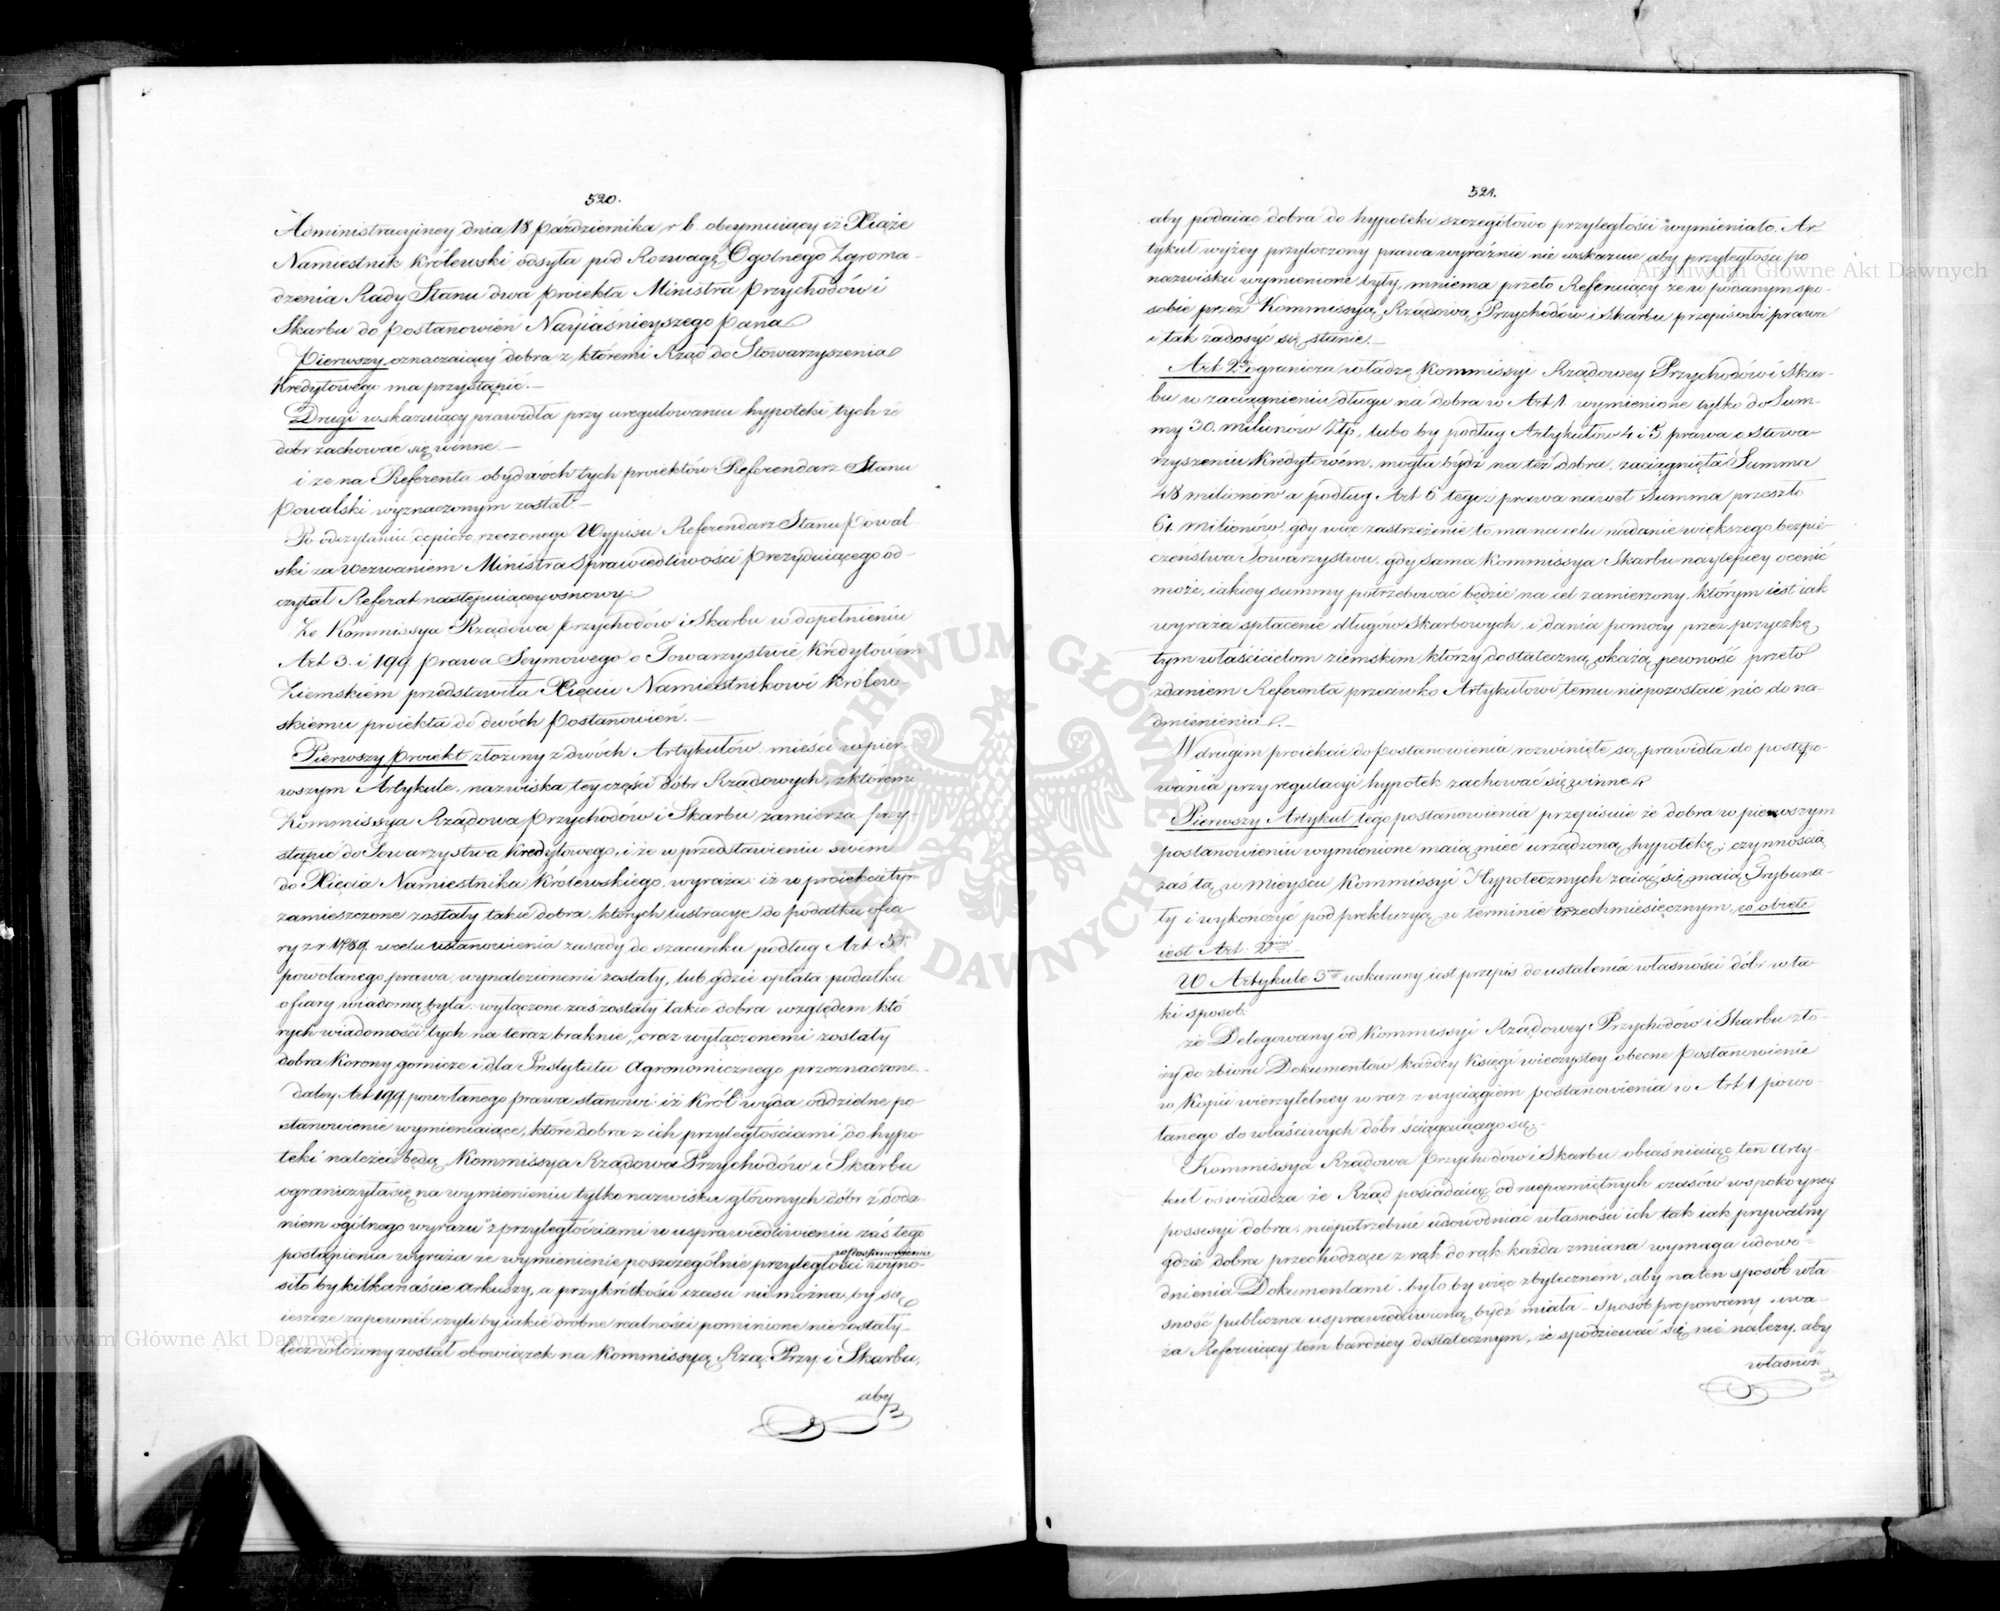 520.
Administracyiney dnia 18 Października r b. obeymuiący iż Xiąże
Namiestnik Królewski odsyła pod Rozwagę Ogolnego Zgroma-
dzenia Rady Stanu dwa proiekta Ministra Przychodów i
Skarbu do postanowień Nayiaśnieyszego Pana
Pierwszy oznaczaiący dobra z któremi Rząd do Stowarzyszenia
Kredytowego ma przystąpić.—
Drugi wskazuiący prawidła przy uregulowaniu hypoteki tych że
dobr zachować się winne.—
i że na Referenta obydwóch tych proiektów Referendarz Stanu
Powalski wyznaczonym został.—
Po odczytaniu dopiero rzeczonego Wypisu Referendarz Stanu Powal-
ski za wezwaniem Ministra Sprawiedliwości Prezyduiącego od-
czytał Referat następuiącey osnowy:
Że Kommissya Rządowa Przychodów i Skarbu w dopełnieniu
Art 3. i 199 prawa Seymowego o Towarzystwie Kredytowém
Ziemskiém przedstawiła Xięciu Namiestnikowi Królew-
skiemu proiekta do dwóch postanowień.—
Pierwszy proiekt złożony z dwóch Artykułów mieści w pier-
wszym Artykule, nazwiska tey części dóbr Rządowych, z któremi
Kommissya Rządowa Przychodów i Skarbu zamierza przy-
stąpić do Towarzystwa Kredytowego, i że w przedstawieniu swém
do Xięcia Namiestnika Królewskiego, wyraża: iż w proiekcie tym
zamieszczone zostały takie dobra, których lustracye do podatku ofia-
ry z r 1789, w celu ustanowienia zasady do szacunku podług Art 5
powołanego prawa, wynalezionemi zostały, lub gdzie opłata podatku
ofiary wiadomą była: wyłączone zaś zostały takie dobra względem któ
rych wiadomości tych na teraz braknie, oraz wyłączonemi zostały
dobra Korony gornicze i dla Instytutu Agronomicznego przeznaczone.
daley Art 199 powołanego prawa stanowi: iż Król wyda oddzielne po-
stanowienie wymieniaiące, które dobra z ich przyległościami do hypo-
teki należeć będą, Kommissya Rządowa Przychodów i Skarbu
ograniczyła się na wymienieniu tylko nazwisku głównych dóbr z doda-
niem ogólnego wyrazu "z przyległościami w usprawiedliwieniu zaś tego
postąpienia wyraża że wymienienie poszczególnie przyległości wyno-
siło by kilkanaście arkuszy, a przy krótkości czasu nie można by się
ieszcze zapewnić czyli by iakie drobne realności pominione nie zostały—
lecz włożony został obowiązek na Kommissyą Rzą: Przy: i Skarbu,
aby
521.
aby podaiąc dobra do hypoteki szczegółowo przyległości wymieniało. Ar-
tykuł wyżey przytoczony prawa wyraźnie nie wskazuie aby przyległości po
nazwisku wymienione były, mniema przeto Referuiący że w podanym spo-
sobie przez Kommissyą Rządową Przychodów i Skarbu przepisowi prawa
i tak zadosyć się stanie.—
Art 2gi ogranicza władzę Kommissyi Rządowey Przychodów i Skar-
bu w zaciągnieniu długu na dobra w Art 1. wymienione tylko do Sum-
my 30. milionów Złp, lubo by podług Artykułów 4 i 5 prawa o Stowa-
rzyszeniu Kredytowém, mogła bydź na też dobra, zaciągnięta Summa
48 milionów a podług Art 6 tegoż prawa nawet Summa przeszło
61 milionów, gdy więc zastrzeżenie to ma na celu nadanie większego bezpie-
czeństwa Towarzystwu, gdy sama Kommissya Skarbu naylepiey ocenić
może, iakiey summy potrzebować będzie na cel zamierzony, którym iest iak
wyraża spłacenie długów Skarbowych, i dania pomocy przez pożyczkę,
tym właścicielom ziemskim, którzy dostateczną okażą pewność przeto
zdaniem Referenta przeciwko Artykułowi temu niepozostaie nic do na-
dmienienia.—
W drugim proiekcie do postanowienia rozwinięte są prawidła do postępo-
wania przy regulacyi hypotek zachować się winne
Pierwszy Artykuł tego postanowienia przepisuie że dobra w pierwszym
postanowieniu wymienione maią mieć urządzoną hypotekę; czynnością
zaś tą w mieyscu Kommissyi Hypotecznych zaiąć się maią Trybuna-
ły i wykończyć pod prekluzyą w terminie trzechmiesięcznym, co obięte
iest Art. 2gim
W Artykule 3cim wskazany iest przepis do ustalenia własności dóbr w ta-
ki sposób.
że Delegowany od Kommissyi Rządowey Przychodów i Skarbu zło-
ży do zbioru Dokumentów każdey Księgi wieczystey obecne postanowienie
w Kopii wierzytelney wraz z wyciągiem postanowienia w Art 1 powo-
łanego do właściwych dóbr ściągaiącego się.—
Kommissya Rządowa Przychodów i Skarbu obiaśniaiąc ten Arty-
kuł oświadcza że Rząd posiadaiąc od niepamiętnych czasów w spokoyney
possesyi dobra, niepotrzebuie udowodniać własności ich tak iak prywatny
gdzie dobra przechodząc z rąk do rąk każda zmiana wymaga udowo-
dnienia Dokumentami, było by więc zbytecznem, aby na ten sposób wła-
sność publiczna usprawiedliwioną bydź miała—Sposób propowany uwa-
ża Referuiący tem bardziey dostatecznym, że spodziewać się nie należy, aby
własność
Archiwum Główne Akt Dawnych
Archiwum Główne Akt Dawnych
ARCHIWUM GŁÓWNE AKT DAWNYCH